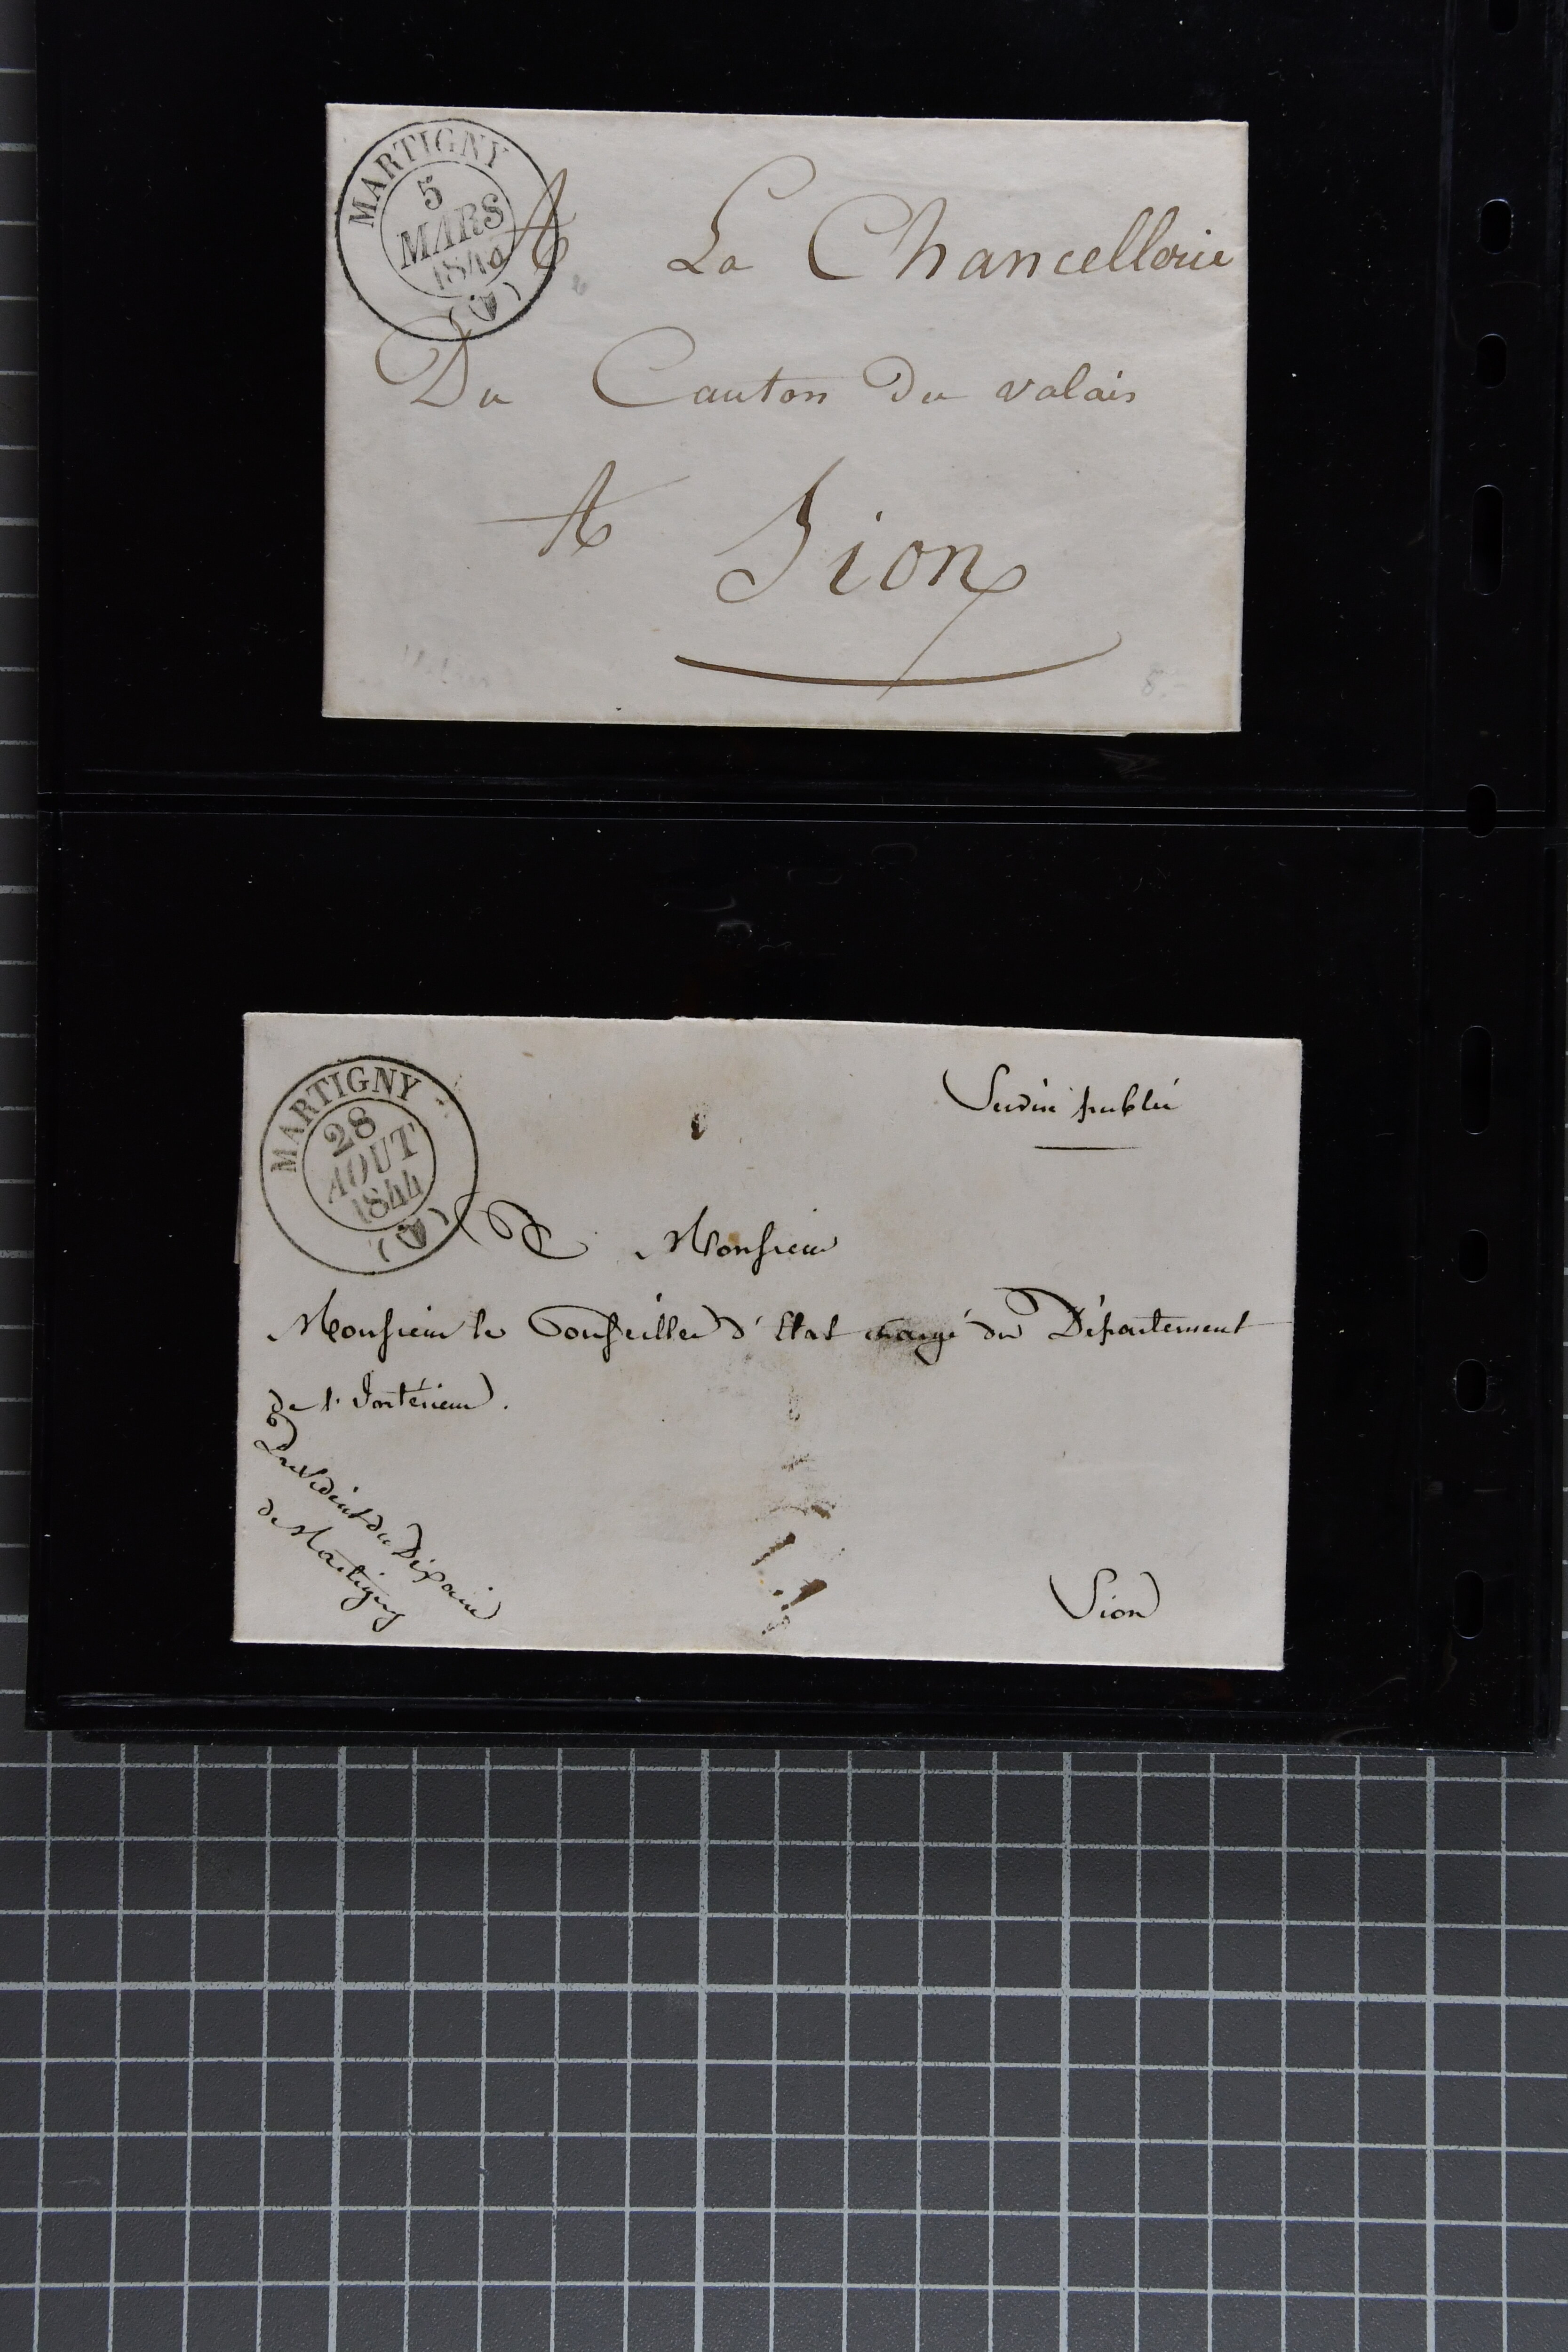 MARTIGNY
5
MARS
(A)
A La Chancellerie
Du Canton du valais
A Sion
8.-
MARTIGNY
28
AOUT
1844
(A)
Service public
A Monsieur
Monsieur le Conseiller d'Etat chargé du Département
de l'Intérieur.
Président du Dixain
de Martigny
Sion